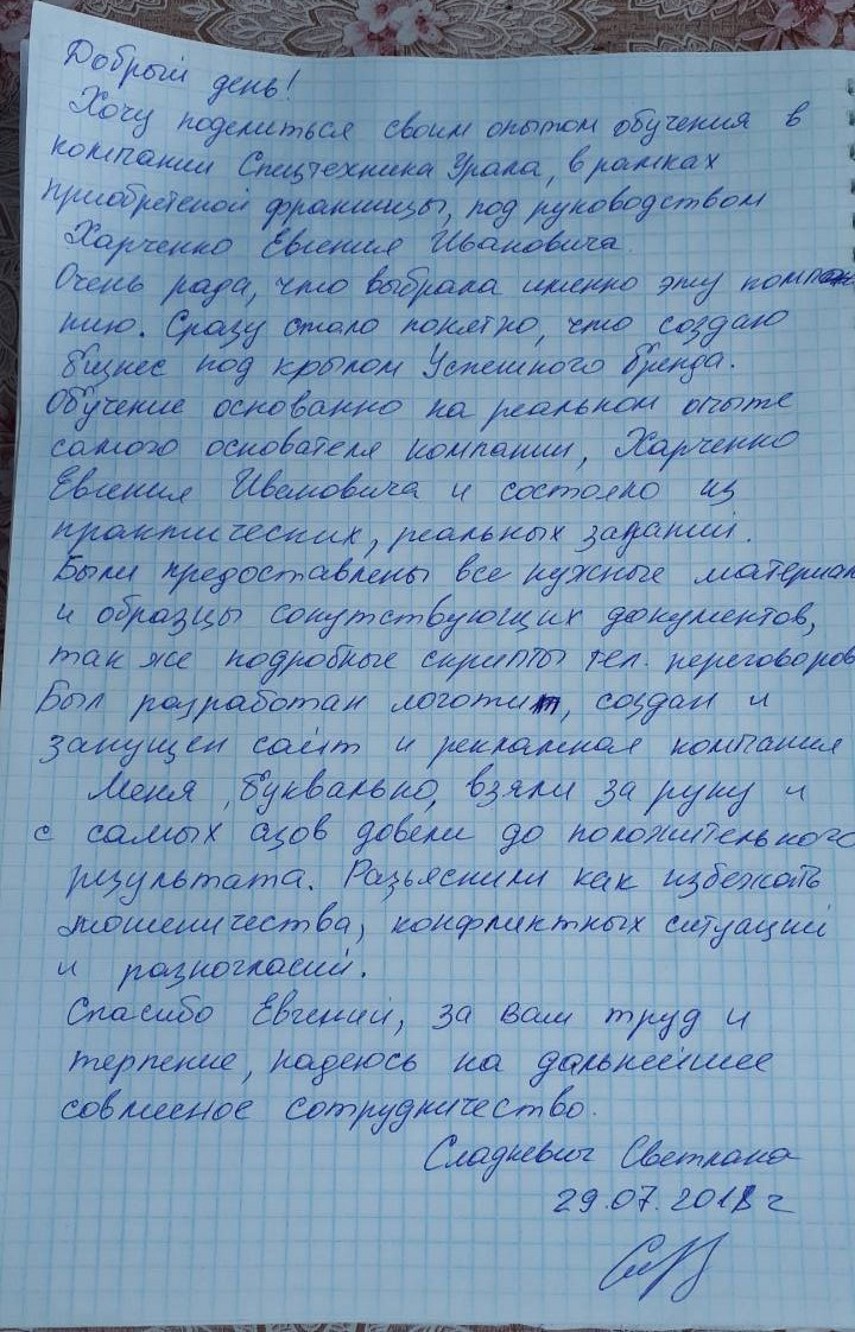 Добрый день!
Хочу поделиться своим опытом обучения в
компании Спецтехника Урала, в рамках
приобретеной франшизы, под руководством
Харченко Евгения Ивановича.
Очень рада, что выбрала именно эту компа
нию. Сразу стало понятно, что создаю
бизнес под крылом Успешного бренда.
Обучение основанно на реальном опыте
самого основателя компании, Харченко
Евгения Ивановича и состояло из
практических, реальных заданий.
Были предоставлены все нужные материал
и образцы сопутствующих документов,
так же подробные скрипты тел. переговоров
Был разработан логотип, создан и
запущен сайт и рекламная компания
Меня, буквально, взяли за руку и
с самых азов довели до положительного
результата. Разъяснили как избежать
мошеничества, конфликтных ситуаций
и разногласий.
Спасибо Евгений, за ваш труд и
терпение, надеюсь на дальнейшее
совмесное сотрудничество.
Сладкевич Светлана
29.07.2018 г